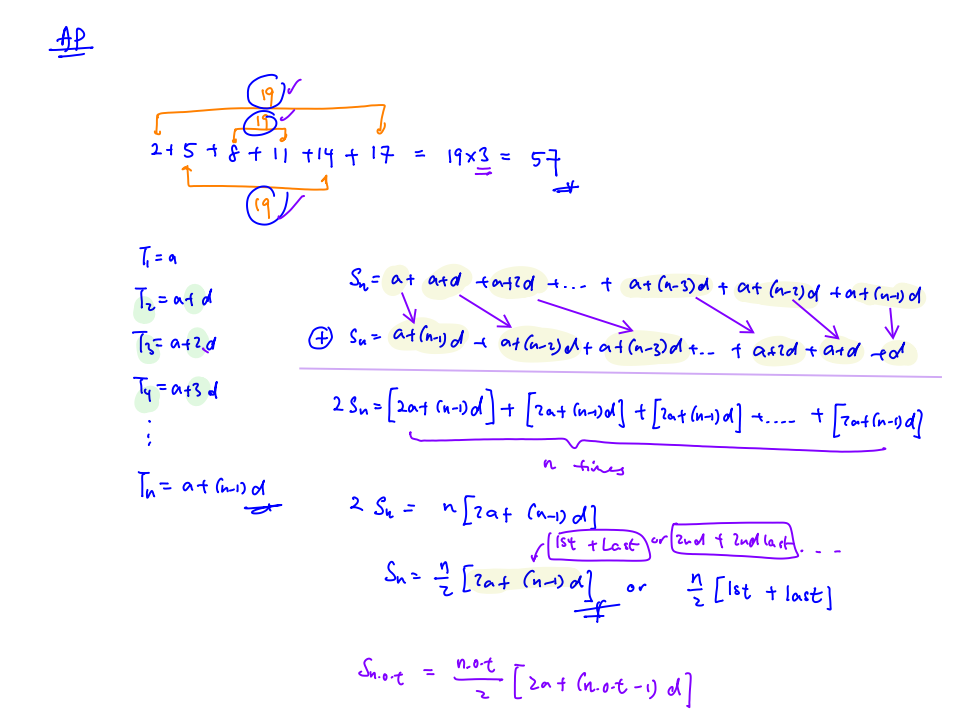 AP
19
19
2 + 5 + 8 + 11 + 14 + 17 = 19 × 3 = 57
19
T₁ = a
T₂ = a + d
T₃ = a + 2d
T₄ = a + 3d
⋮
Tₙ = a + (n-1)d
Sₙ = a + a+d + a+2d + ... + a+(n-3)d + a+(n-2)d + a+(n-1)d
⊕ Sₙ = a+(n-1)d + a+(n-2)d + a+(n-3)d + ... + a+2d + a+d + d
2Sₙ = [2a+(n-1)d] + [2a+(n-1)d] + [2a+(n-1)d] + ..... + [2a+(n-1)d]
n times
2 Sₙ = n[2a + (n-1)d]
1st + Last or 2nd + 2nd last ....
Sₙ = n/2 [2a + (n-1)d] or n/2 [1st + last]
Sn.o.t = n.o.t/2 [2a + (n.o.t - 1)d]